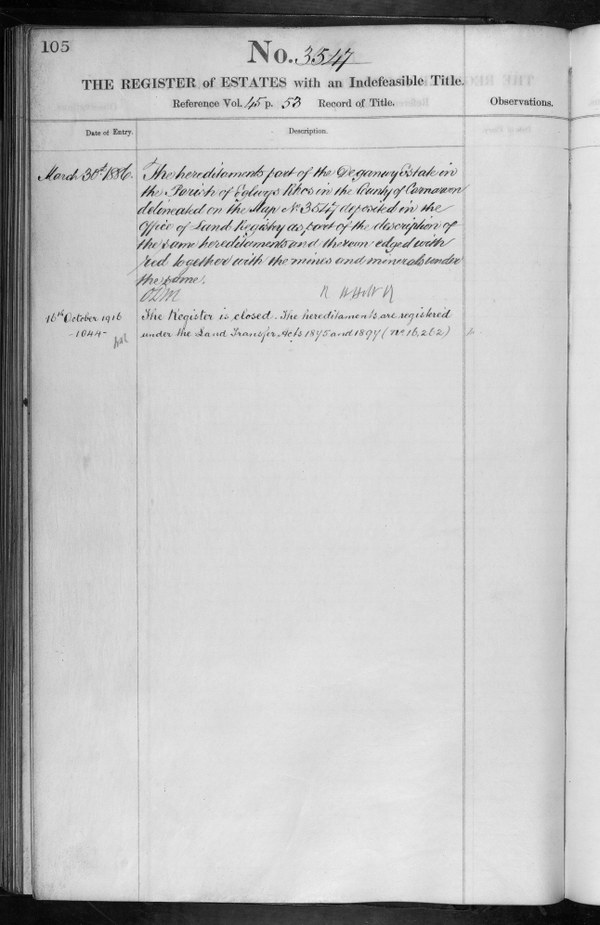 105
No. 3547
THE REGISTER of ESTATES with an Indefeasible Title.
Reference Vol. 45 p. 53 Record of Title.
Observations.
Date of Entry.
Description.
March 30th 1886.
The hereditaments part of the Deganwy Estate in
the Parish of Eglwys Rhos in the County of Carnarvon
delineated on the Map No 3547 deposited in the
Office of Land Registry as part of the description of
the same hereditaments and thereon edged with
red together with the mines and minerals under
the same.
R H Holt R
16th October 1916
-1044-
The Register is closed. The hereditaments are registered
under the Land Transfer Acts 1875 and 1897 (No 16,262)